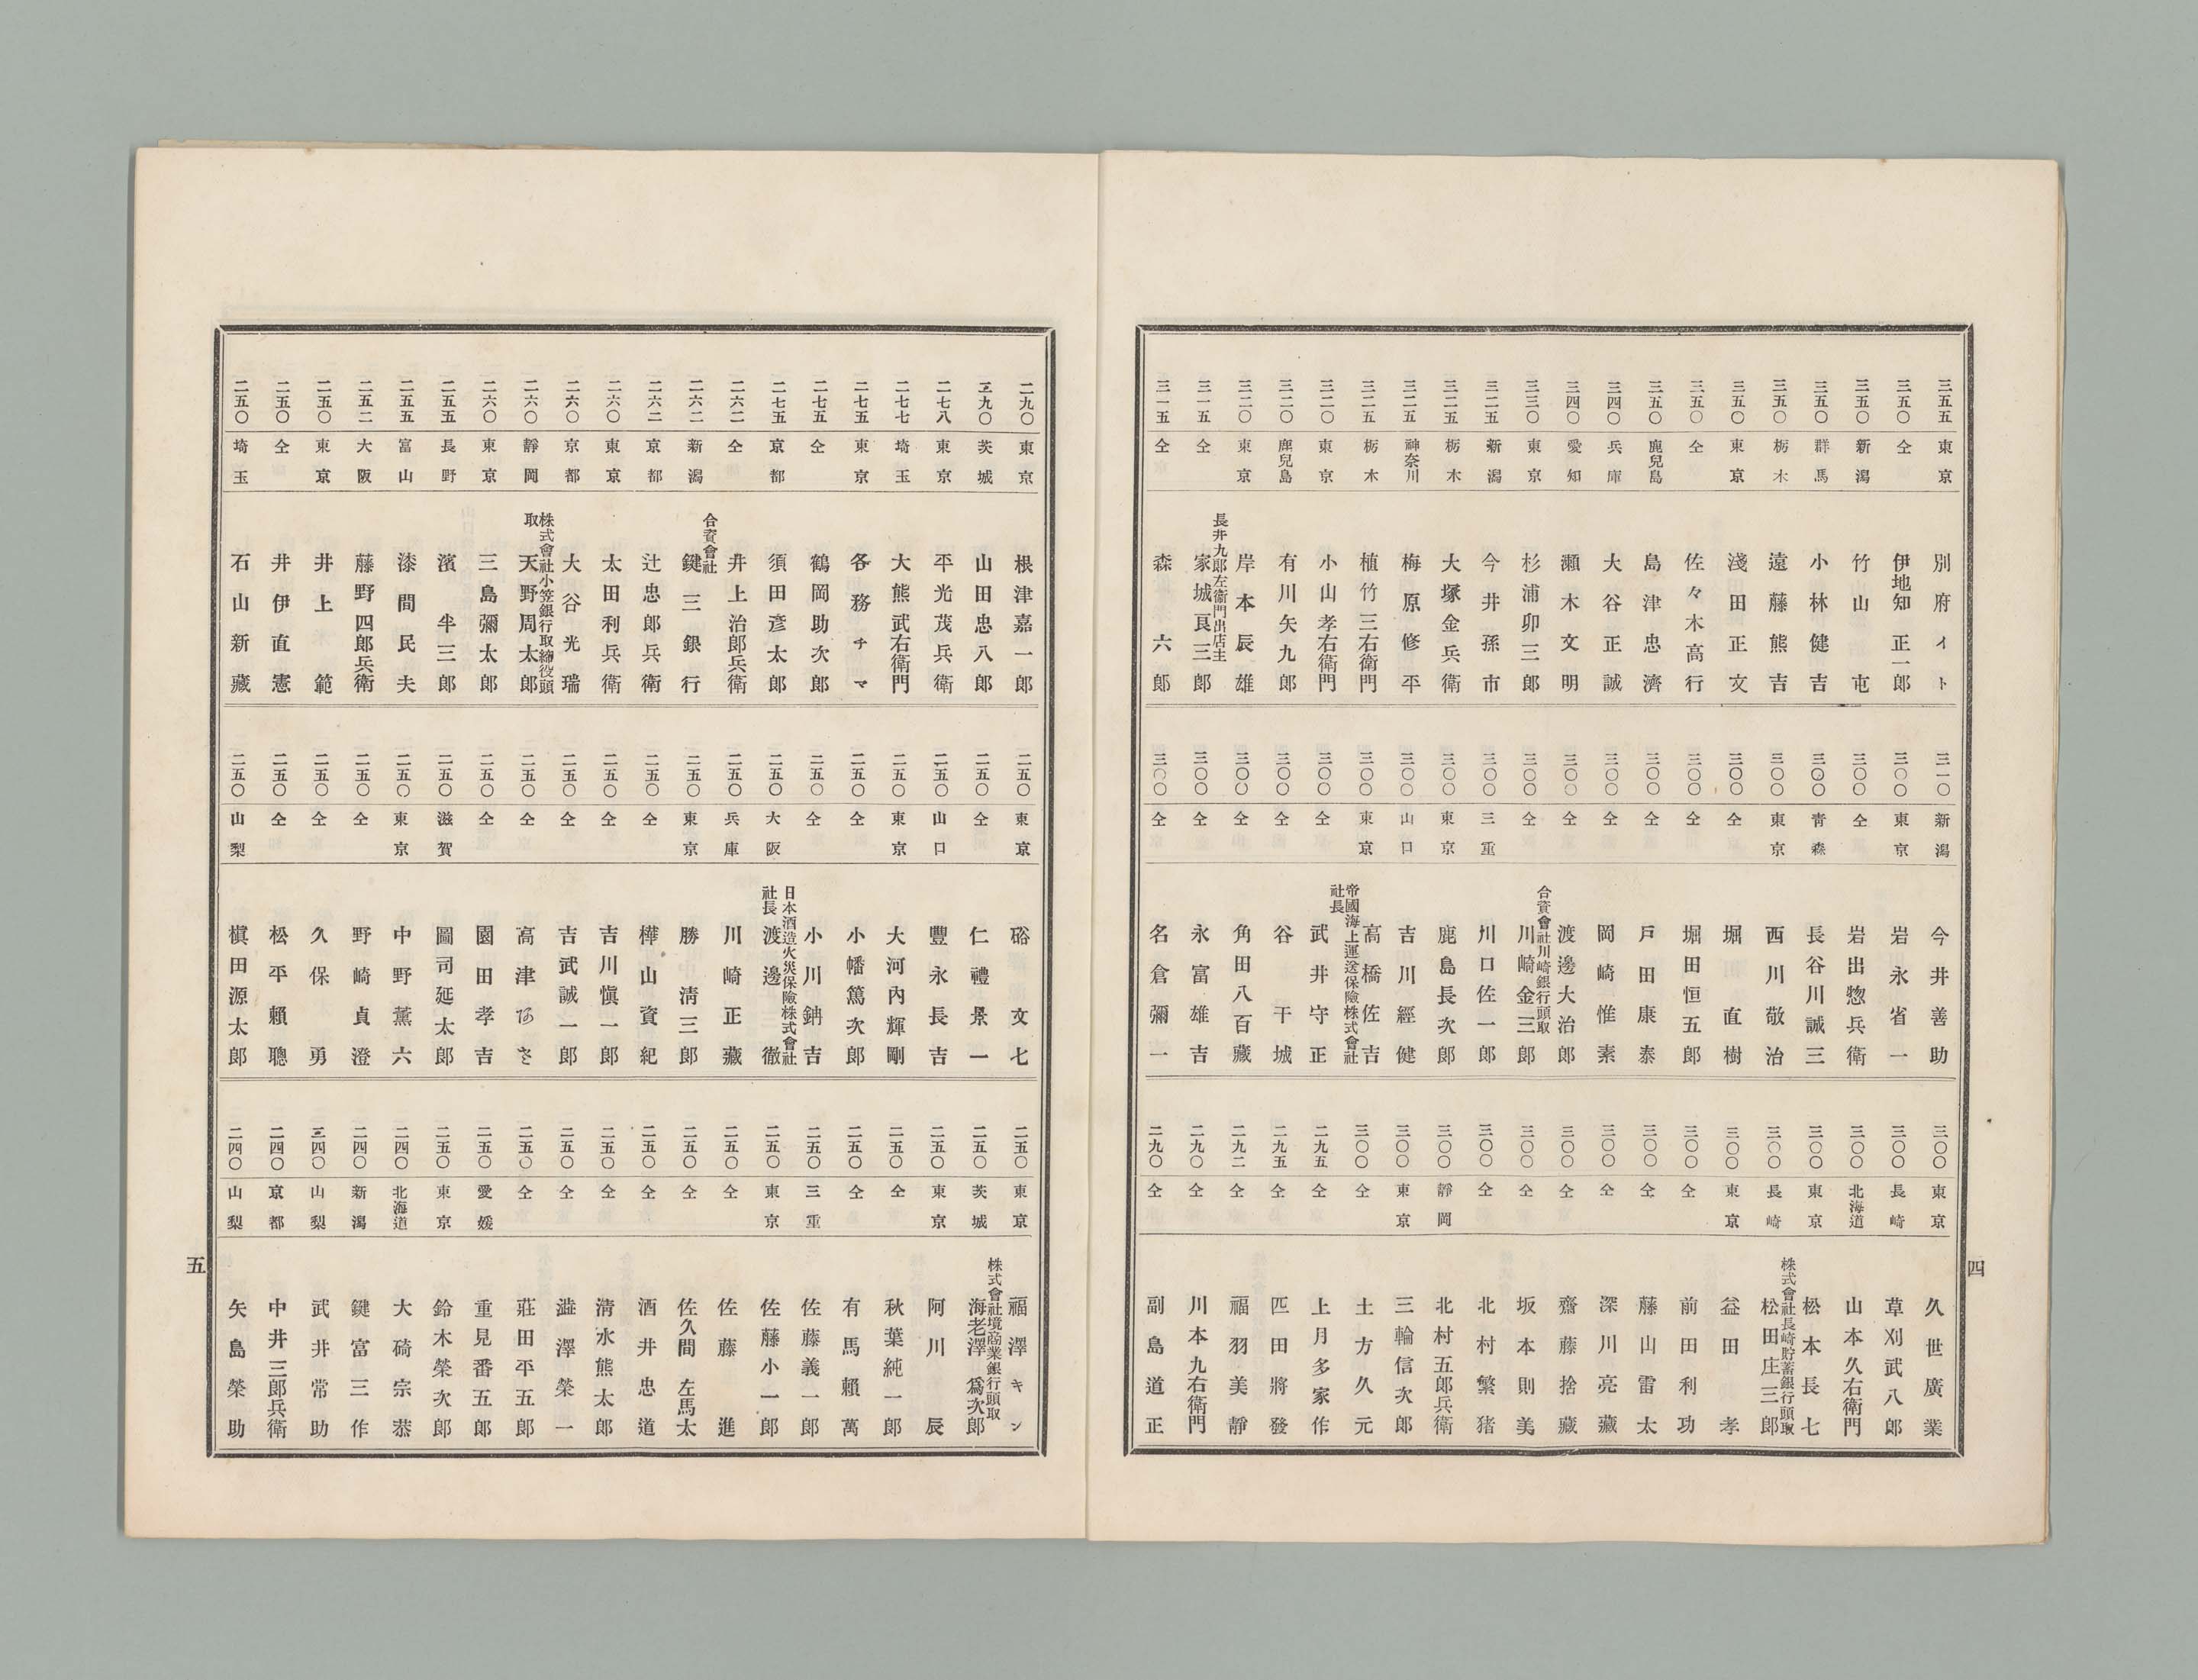 三五五 東京 別府イト
三五〇 仝 伊地知正一郎
三五〇 新潟 竹山屯
三五〇 群馬 小林健吉
三五〇 栃木 遠藤熊吉
三五〇 東京 淺田正文
三五〇 仝 佐々木高行
三五〇 鹿兒島 島津忠濟
三四〇 兵庫 大谷正誠
三四〇 愛知 瀬木文明
三三〇 東京 杉浦卯三郎
三二五 新潟 今井孫市
三二五 栃木 大塚金兵衛
三二五 神奈川 梅原修平
三二五 栃木 植竹三右衛門
三二〇 東京 小山孝右衛門
三二〇 鹿兒島 有川矢九郎
三二〇 東京 岸本辰雄
三一五 仝 長井九郎左衛門出店主 家城良三郎
三一五 仝 森六郎
三一〇 新潟 今井善助
三〇〇 東京 岩永省一
三〇〇 仝 岩出惣兵衛
三〇〇 青森 長谷川誠三
三〇〇 東京 西川敬治
三〇〇 仝 堀直樹
三〇〇 仝 堀田恒五郎
三〇〇 仝 戸田康泰
三〇〇 仝 岡崎惟素
三〇〇 仝 渡邊大治郎
三〇〇 仝 合資會社川崎銀行頭取 川崎金三郎
三〇〇 三重 川口佐一郎
三〇〇 東京 鹿島長次郎
三〇〇 山口 吉川經健
三〇〇 東京 高橋佐吉
三〇〇 仝 帝國海上運送保險株式會社社長 武井守正
三〇〇 仝 谷干城
三〇〇 仝 角田八百藏
三〇〇 仝 永富雄吉
三〇〇 仝 名倉彌一
三〇〇 東京 久世廣業
三〇〇 長崎 草刈武八郎
三〇〇 北海道 山本久右衛門
三〇〇 東京 松本長七
三〇〇 長崎 株式會社長崎貯蓄銀行頭取 松田庄三郎
三〇〇 東京 益田孝
三〇〇 仝 前田利功
三〇〇 仝 藤山雷太
三〇〇 仝 深川亮藏
三〇〇 仝 齋藤捨藏
三〇〇 仝 坂本則美
三〇〇 仝 北村繁猪
三〇〇 靜岡 北村五郎兵衛
三〇〇 東京 三輪信次郎
三〇〇 仝 土方久元
二九五 仝 上月多家作
二九五 仝 匹田將發
二九二 仝 福羽美靜
二九〇 仝 川本九右衛門
二九〇 仝 副島道正
四
二九〇 東京 根津嘉一郎
二九〇 茨城 山田忠八郎
二七八 東京 平光茂兵衛
二七七 埼玉 大熊武右衛門
二七五 東京 各務チマ
二七五 仝 鶴岡助次郎
二七五 京都 須田彦太郎
二六二 仝 井上治郎兵衛
二六二 新潟 合資會社 鍵三銀行
二六二 京都 辻忠郎兵衛
二六〇 東京 太田利兵衛
二六〇 京都 大谷光瑞
二六〇 靜岡 株式會社小笠銀行取締役頭取 天野周太郎
二六〇 東京 三島彌太郎
二五五 長野 濱半三郎
二五五 富山 漆間民夫
二五二 大阪 藤野四郎兵衛
二五〇 東京 井上範
二五〇 仝 井伊直憲
二五〇 埼玉 石山新藏
二五〇 東京 硲文七
二五〇 仝 仁禮景一
二五〇 山口 豐永長吉
二五〇 東京 大河內輝剛
二五〇 仝 小幡篤次郎
二五〇 仝 小川銷吉
二五〇 大阪 日本酒造火災保險株式會社社長 渡邊徹
二五〇 兵庫 川崎正藏
二五〇 東京 勝清三郎
二五〇 仝 樺山資紀
二五〇 仝 吉川愼一郎
二五〇 仝 吉武誠一郎
二五〇 仝 高津
二五〇 仝 園田孝吉
二五〇 滋賀 圖司延太郎
二五〇 東京 中野薰六
二五〇 仝 野崎貞澄
二五〇 仝 久保勇
二五〇 仝 松平賴聰
二五〇 山梨 槇田源太郎
二五〇 東京 福澤キン
二五〇 茨城 株式會社境商業銀行頭取 海老澤爲次郎
二五〇 東京 阿川辰
二五〇 仝 秋葉純一郎
二五〇 仝 有馬賴萬
二五〇 三重 佐藤義一郎
二五〇 東京 佐藤小一郎
二五〇 仝 佐藤進
二五〇 仝 佐久間左馬太
二五〇 仝 酒井忠道
二五〇 仝 清水熊太郎
二五〇 仝 澁澤榮一
二五〇 仝 莊田平五郎
二五〇 愛媛 重見番五郎
二五〇 東京 鈴木榮次郎
二四〇 北海道 大碕宗恭
二四〇 新潟 鍵富三作
二四〇 山梨 武井常助
二四〇 京都 中井三郎兵衛
二四〇 山梨 矢島榮助
五